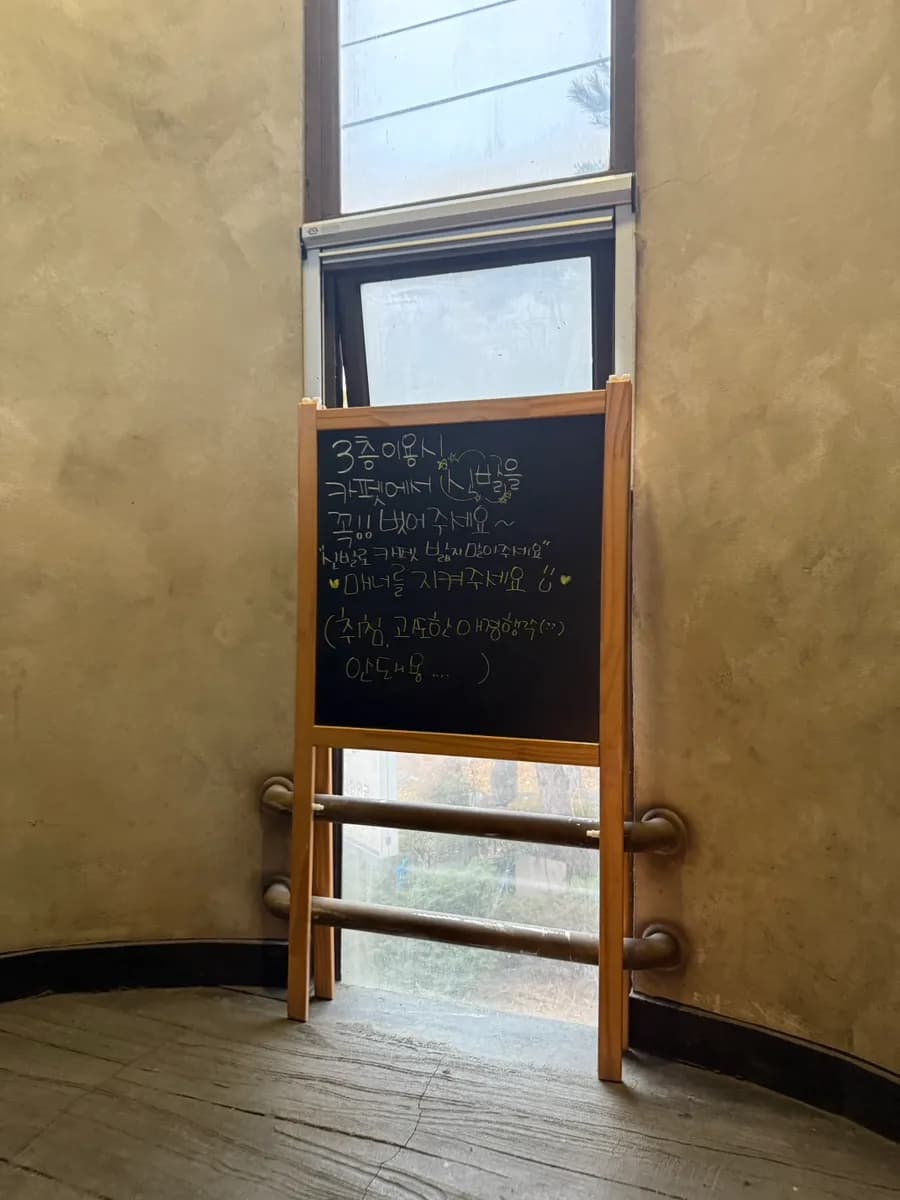 3층 이용시
카펫에서 신발을
꼭!! 벗어 주세요~
"신발로 카펫 밟지 말아주세요"
매너를 지켜주세요
(취침, 과도한 애정행각(..)
안돼용.... )